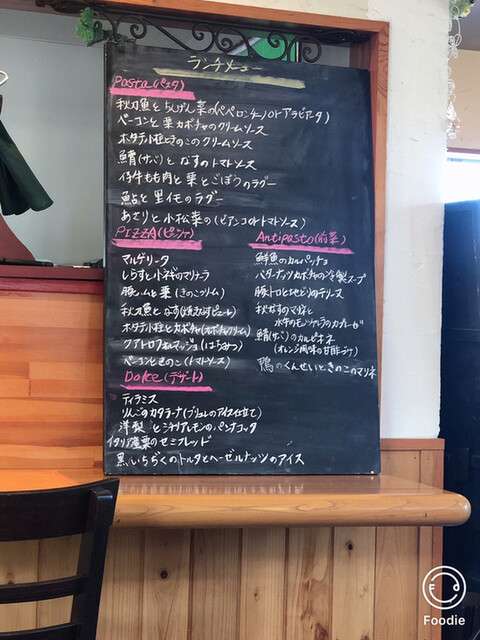 ランチメニュー
Pasta(パスタ)
秋刀魚とちんげん菜の(ペペロンチーノorアラビアータ)
ベーコンと栗カボチャのクリームソース
ホタテ小柱ときのこのクリームソース
鯖(サバ)となすのトマトソース
仔牛もも肉と栗とごぼうのラグー
鮎と里イモのラグー
あさりと小松菜の(ビアンコorトマトソース)
PIZZA(ピッツァ)
マルゲリータ
しらすと小ネギのマリナーラ
豚ハムと栗(きのこクリーム)
秋刀魚となす
ホタテ小柱とカボチャ(カボチャクリーム)
クアトロフォルマッジョ(はちみつ)
ベーコンときのこ(トマトソース)
Antipasto(前菜)
鮮魚のカルパッチョ
バターナッツカボチャの冷製スープ
豚トロと地どりのテリーヌ
秋なすのマリネと
水牛のモッツァレラのカプレーゼ
鯖(サバ)のカルピオーネ
(オレンジ風味の甘酢づけ)
鴨のくんせいときのこのマリネ
Dolce(デザート)
ティラミス
りんごのカタラーナ(ブリュレのアイス仕立て)
洋梨とシチリアレモンのパンナコッタ
イタリア産栗のセミフレッド
黒いちぢくのトルタとヘーゼルナッツのアイス
Foodie